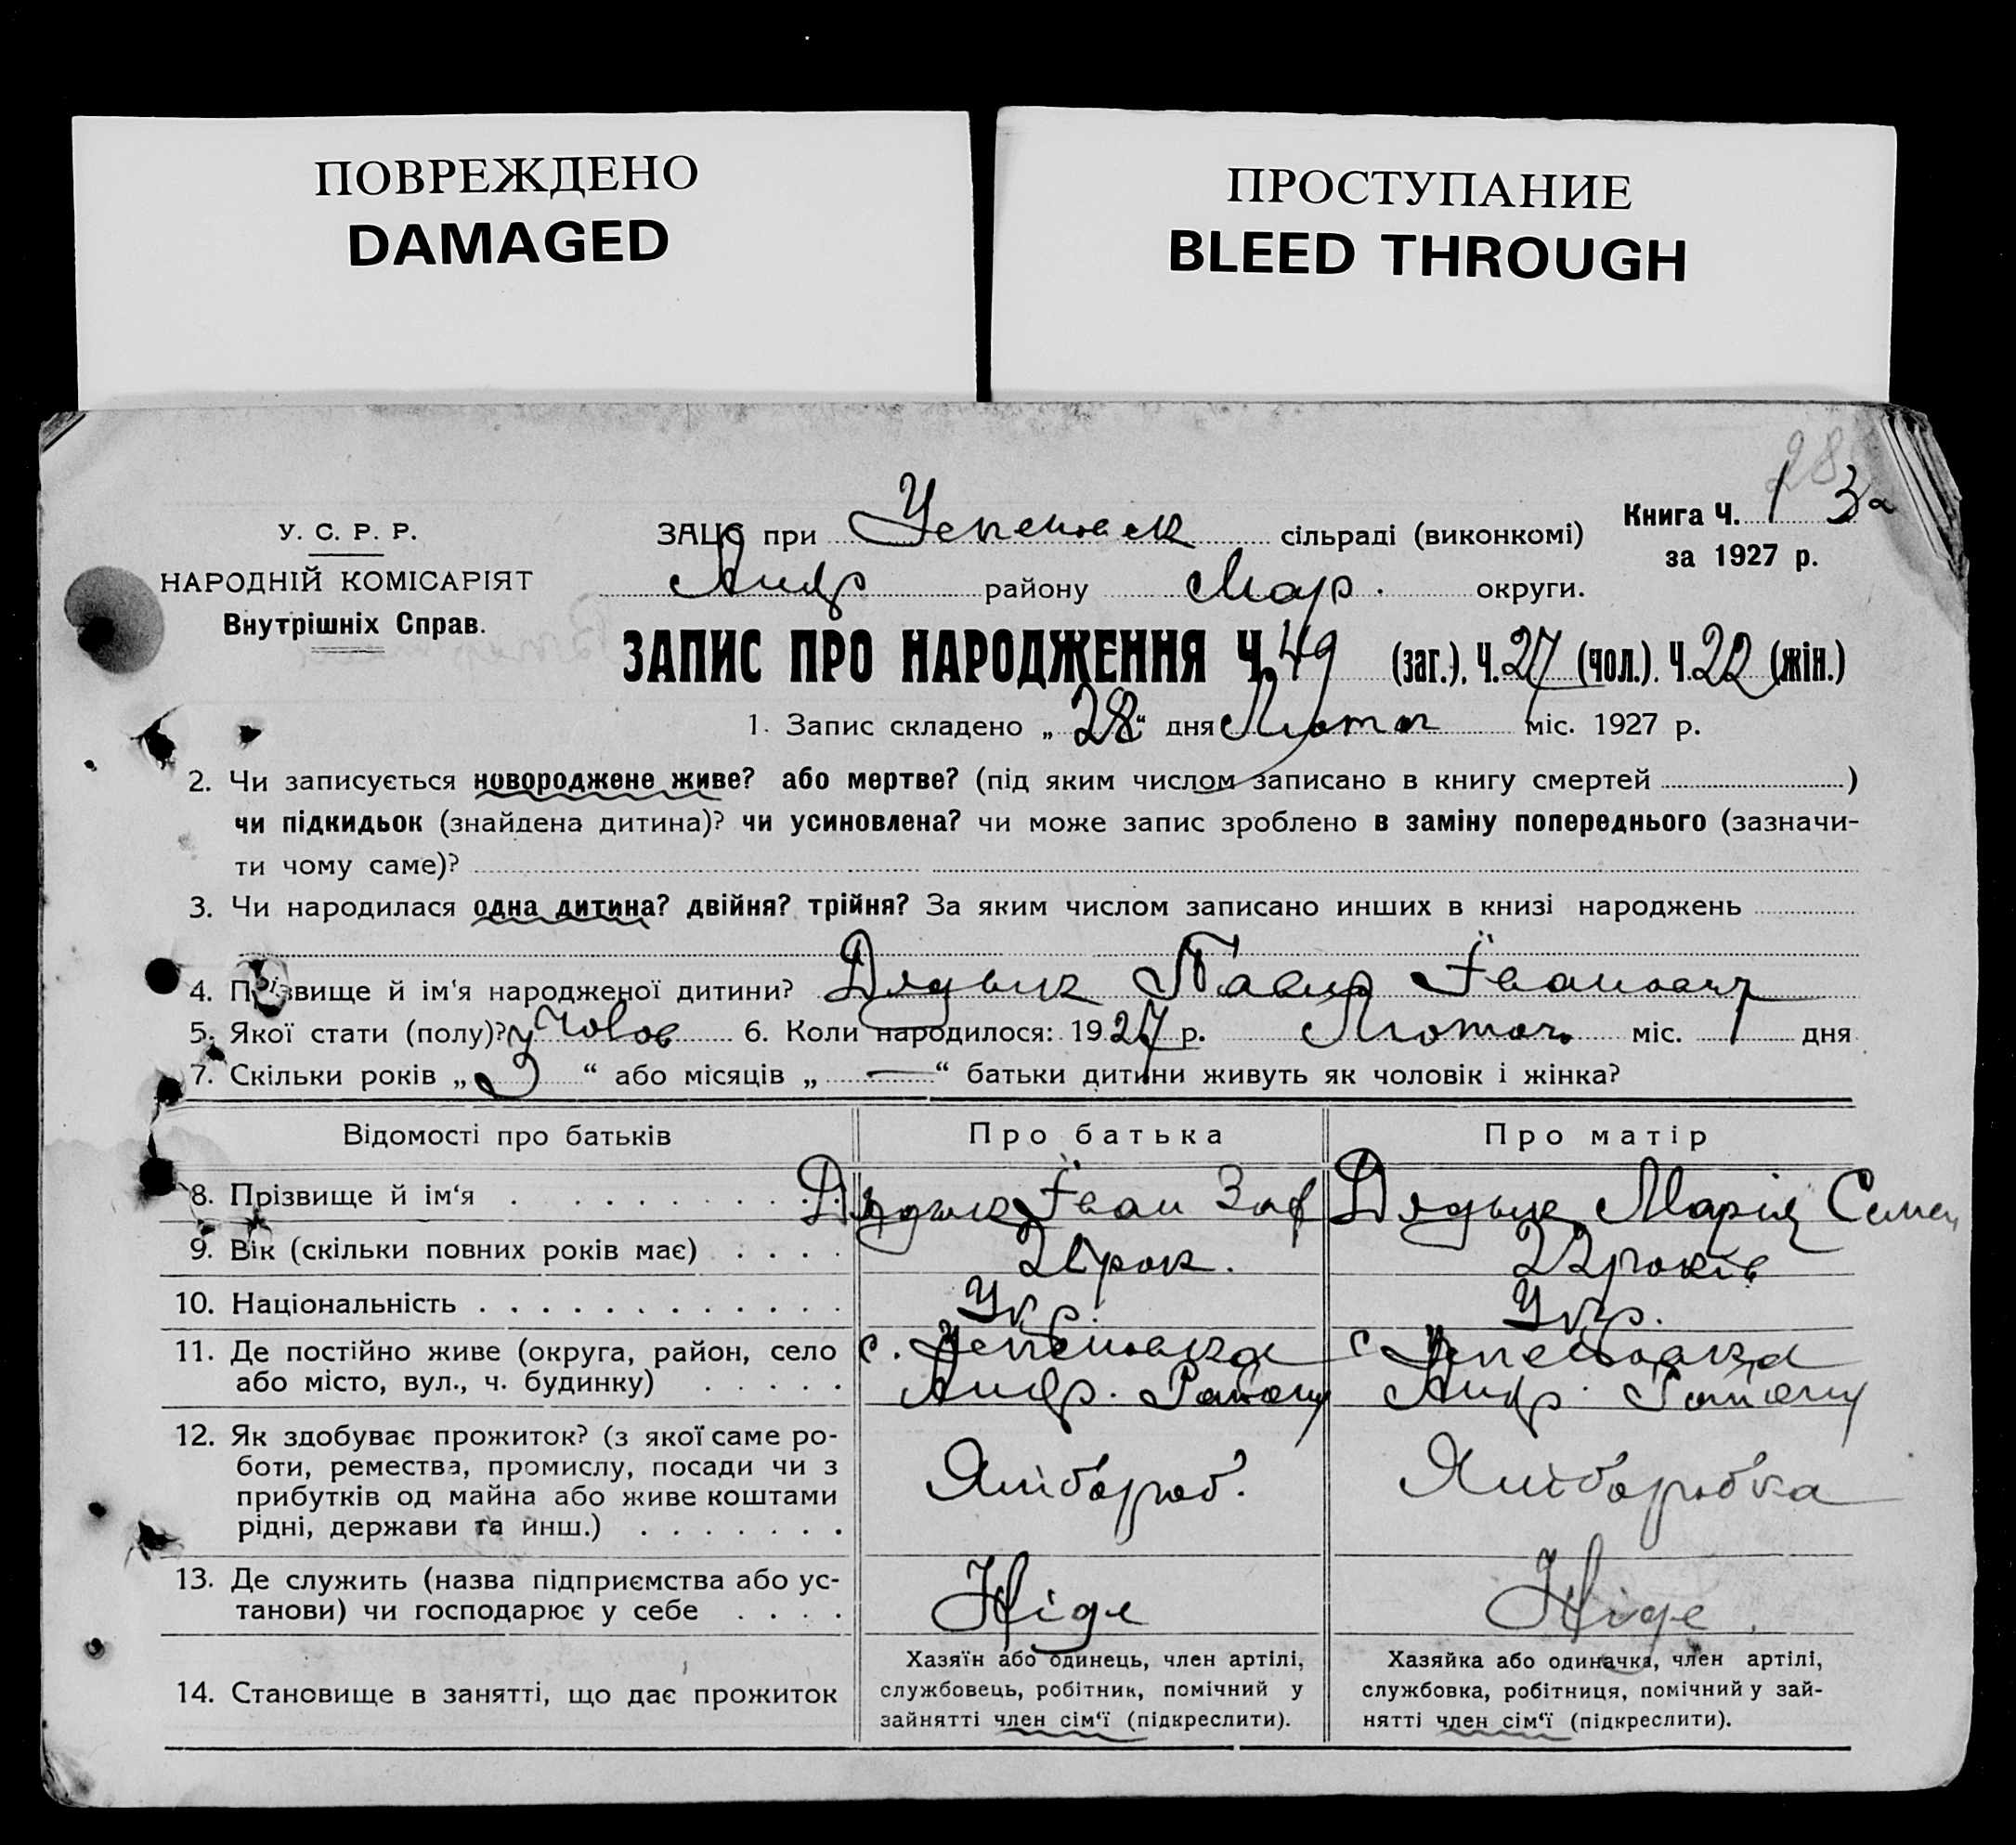 ПОВРЕЖДЕНО
DAMAGED
ПРОСТУПАНИЕ
BLEED THROUGH
28
У. С. Р. Р.
НАРОДНІЙ КОМІСАРІЯТ
Внутрішніх Справ.
ЗАЦС при Успеновск сільраді (виконкомі)
Андр району Мар. округи.
Книга Ч. 1
за 1927 р.
ЗАПИС ПРО НАРОДЖЕННЯ Ч. 49 (заг.), Ч. 27 (чол.). Ч. 22 (жін.)
1. Запис складено „28“ дня Лютог міс. 1927 р.
2. Чи записується новороджене живе? або мертве? (під яким числом записано в книгу смертей )
чи підкидьок (знайдена дитина)? чи усиновлена? чи може запис зроблено в заміну попереднього (зазначи-
ти чому саме)?
3. Чи народилася одна дитина? двійня? трійня? За яким числом записано инших в книзі народжень
4. Прізвище й ім'я народженої дитини? Дядык Павло Іванович
5. Якої стати (полу)? Чолов 6. Коли народилося: 1927 р. Лютого міс. 1 дня
7. Скільки років „3“ або місяців „—“ батьки дитини живуть як чоловік і жінка?
Відомості про батьків Про батька Про матір
8. Прізвище й ім‘я Дядык Іван Дядык Марія Семен
9. Вік (скільки повних років має) рок. 22 років
10. Національність Укр. Укр.
11. Де постійно живе (округа, район, село с. Успеновка с Успеновка
або місто, вул., ч. будинку) Андр. Району Андр. Району
12. Як здобуває прожиток? (з якої саме ро-
боти, ремества, промислу, посади чи з
прибутків од майна або живе коштами
рідні, держави та инш.) Хлібороб. Хліборобка
13. Де служить (назва підприємства або ус-
танови) чи господарює у себе Ніде Ніде
14. Становище в занятті, що дає прожиток
Хазяїн або одинець, член артілі,
службовець, робітник, помічний у
зайнятті член сім‘ї (підкреслити).
Хазяйка або одиначка, член артілі,
службовка, робітниця, помічний у зай-
нятті член сім‘ї (підкреслити).